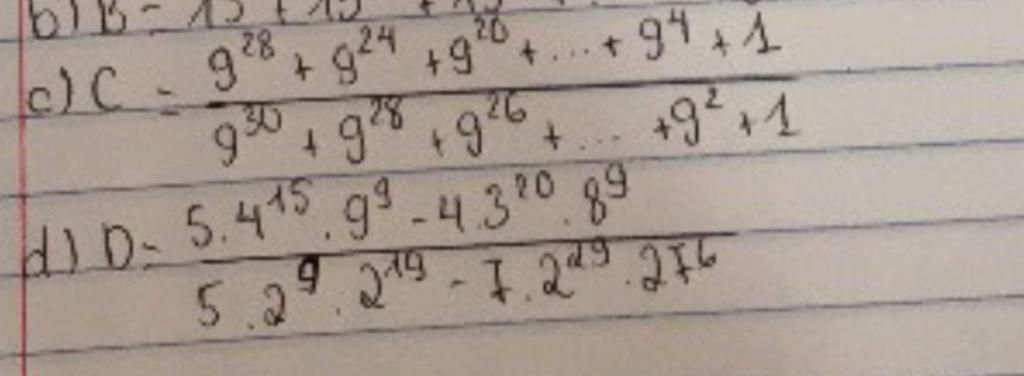 b) B = 15 + 15 + 15
c) C = \frac{9^{28} + 9^{24} + 9^{20} + ... + 9^4 + 1}{9^{30} + 9^{28} + 9^{26} + ... + 9^2 + 1}
d) D = \frac{5.4^{15}.9^9 - 4.3^{20}.8^9}{5.2^9.2^{19} - 7.2^{29}.27^6}